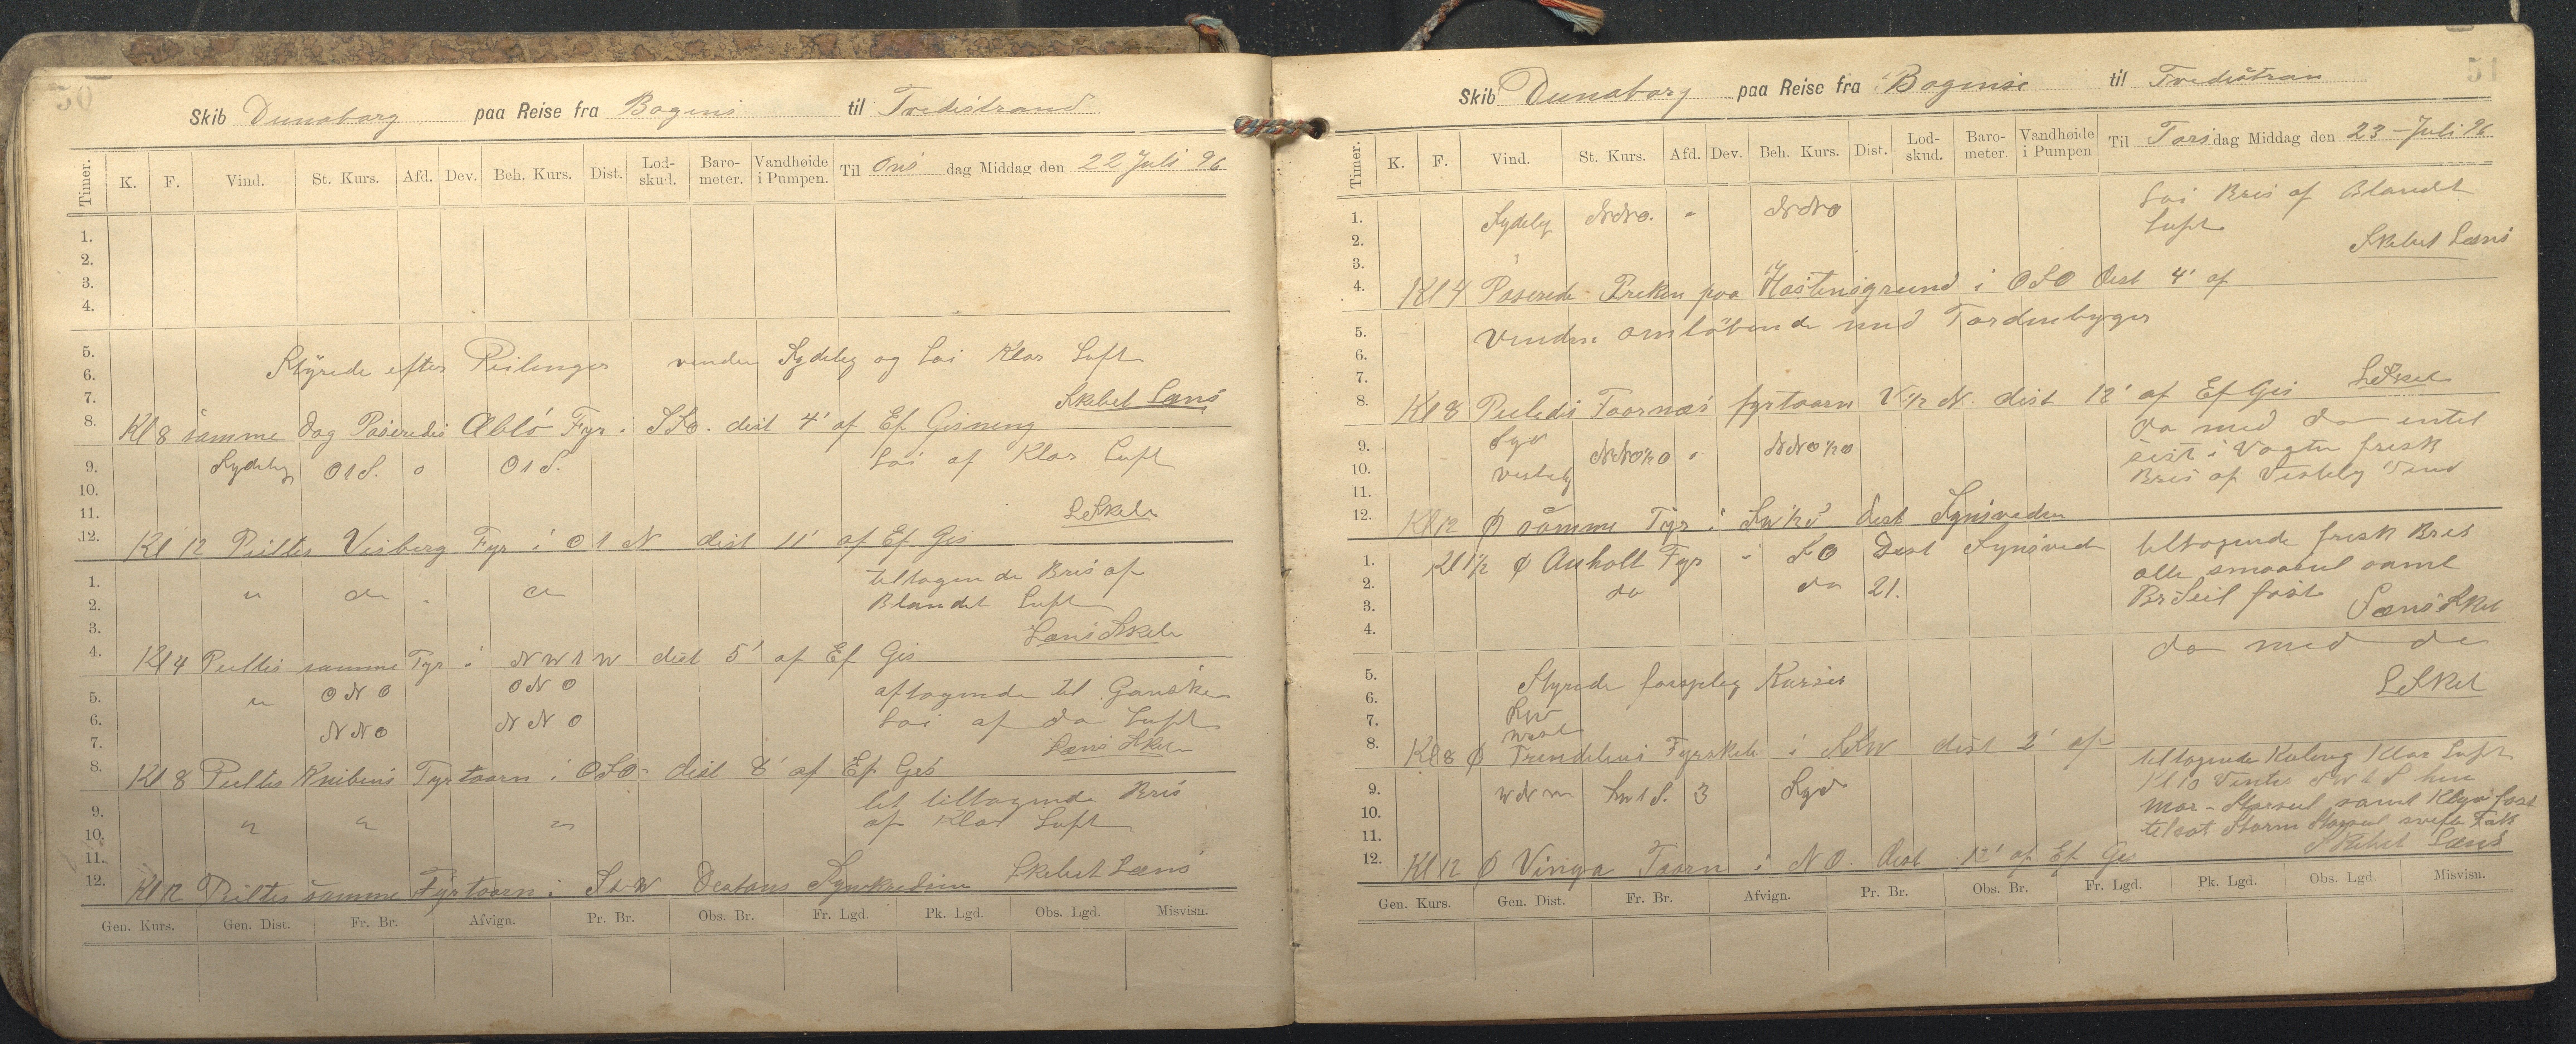 50
Skib Dunaborg paa Reise fra Bogens til Tvedestrand
Timer. K. F. Vind. St. Kurs. Afd. Dev. Beh. Kurs. Dist. Lod-skud. Baro-meter. Vandhøide i Pumpen. Til Ons dag Middag den 22 Juli 96
1.
2.
3.
4.
5.
6. Styrede efter Peilinger vinden Sydelig og Loi Klar Luft
7. Skibet Læns
8. Kl 8 samme Dag Paseredes Æblö Fyr i SSO. dist 4' af Ef Gisning
9. Sydelig O t S. o O t S. Loi af Klar Luft
10.
11. L Skib
12. Kl 12 Peiltes Vesborg Fyr i O t N dist 11' af Ef Gis
1. " do " do tiltagende Bris af
2. Blandet Luft
3. Læns Skib
4. Kl 4 Peiltes samme Fyr i N W t W dist 5' af Ef Gis
5. " O N O O N O aftagende til Ganske
6. N N O N N O Loi af do Luft
7. Læns Skib
8. Kl 8 Peiltes Knibens Fyrtaarn i OSO dist 8' af Ef Gis
9. let tiltagende Bris
10. " " " af Klar Luft
11. Skibet Læns
12. Kl 12 Peiltes samme Fyrtaarn i S t W Distans
Gen. Kurs. Gen. Dist. Fr. Br. Afvign. Pr. Br. Obs. Br. Fr. Lgd. Pk. Lgd. Obs. Lgd. Misvisn.
51
Skib Dunaborg paa Reise fra Bogense til Tvedestran
Timer. K. F. Vind. St. Kurs. Afd. Dev. Beh. Kurs. Dist. Lod-skud. Baro-meter. Vandhøide i Pumpen Til Tors dag Middag den 23 - Juli 96
1. Sydelig NNO. " NNO Loi Bris af Blandt
2. Luft
3. Skibet Læns
4. Kl 4 Paserede Preken paa Hastensgrund i OSO dist 4' af
5. Vinden omløbende med Tordenbyger
6.
7. L Skib
8. Kl 8 Peiledes Fornæs fyrtaarn V ½ N. dist 12' af Ef Gis
9. Syd NNO½O " NNO½O do med do entel
10. vestelig sist i Vagten frisk
11. Bris af Vestelig Vind
12. Kl 12 Ø samme Fyr i SW½S dist Synsveden
1. Kl 1½ Ø Anholt Fyr - SO Dist Synsvede tiltagende frisk Bris
2. do do 21. alle smaaseil samt
3. Br Seil fast Læns Skib
4.
5. do med do
6. Styrede forsjelig Kurser L Skib
7. Syd
8. west
Kl 8 Ø Trendelens Fyrskib i SSW dist 2' af
9. WNW SW t S. 3 Syd tiltagende Kuling Klar Luft
10. Kl 10 Vente SW t S hen
11. Mar - Storseil samt Klyv fast
tilsat Storm Stagseil
12. Skibet Læns
Kl 12 Ø Vinga Taarn i NO. dist 12' af Ef Gis
Gen. Kurs. Gen. Dist. Fr. Br. Afvign. Pr. Br. Obs. Br. Fr. Lgd. Pk. Lgd. Obs. Lgd. Misvisn.